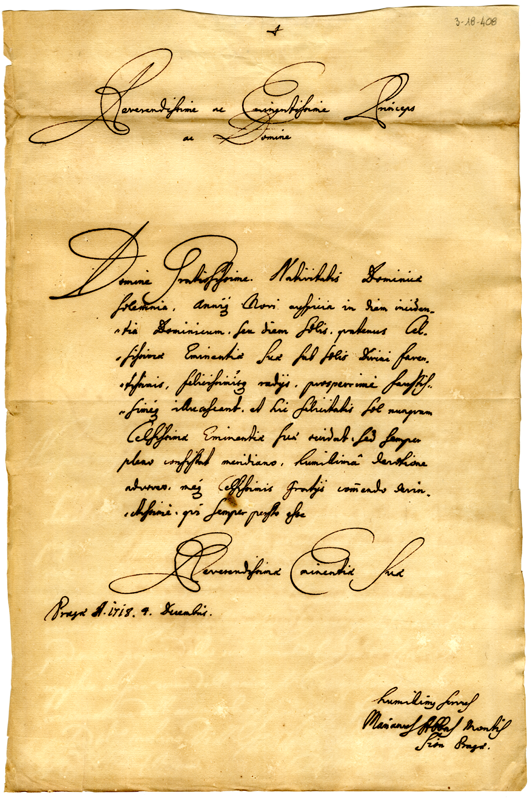 3-18-408
Reverendissime ac Eminentissime Princeps
ac Domine
Domine Gratiosissime. Nativitatis Dominicæ
solemnia, Anniq Novi auspicia in diem inciden-
-tia Dominicum, seu diem Solis, quatenus Cel-
-sissimæ Eminentiæ Suæ sub solis Divini faven-
-tissimis, felicissimisq radijs, prosperrimè faustis-
-simeq illucescant, et hic felicitatis sol nunquam
Celsissimæ Eminentiæ Suæ occidat, sed semper
pleno consistat meridiano, humilimâ devotione
adprecor, meq Celsissimis Gratijs com̃endo devin-
-ctissimè, qui semper persto esse
Reverendissimæ Eminentiæ Suæ
Pragæ A. 1718. 9. Decembris.
humilimus servus
Marianus Abbas Montis
Sion Pragæ.